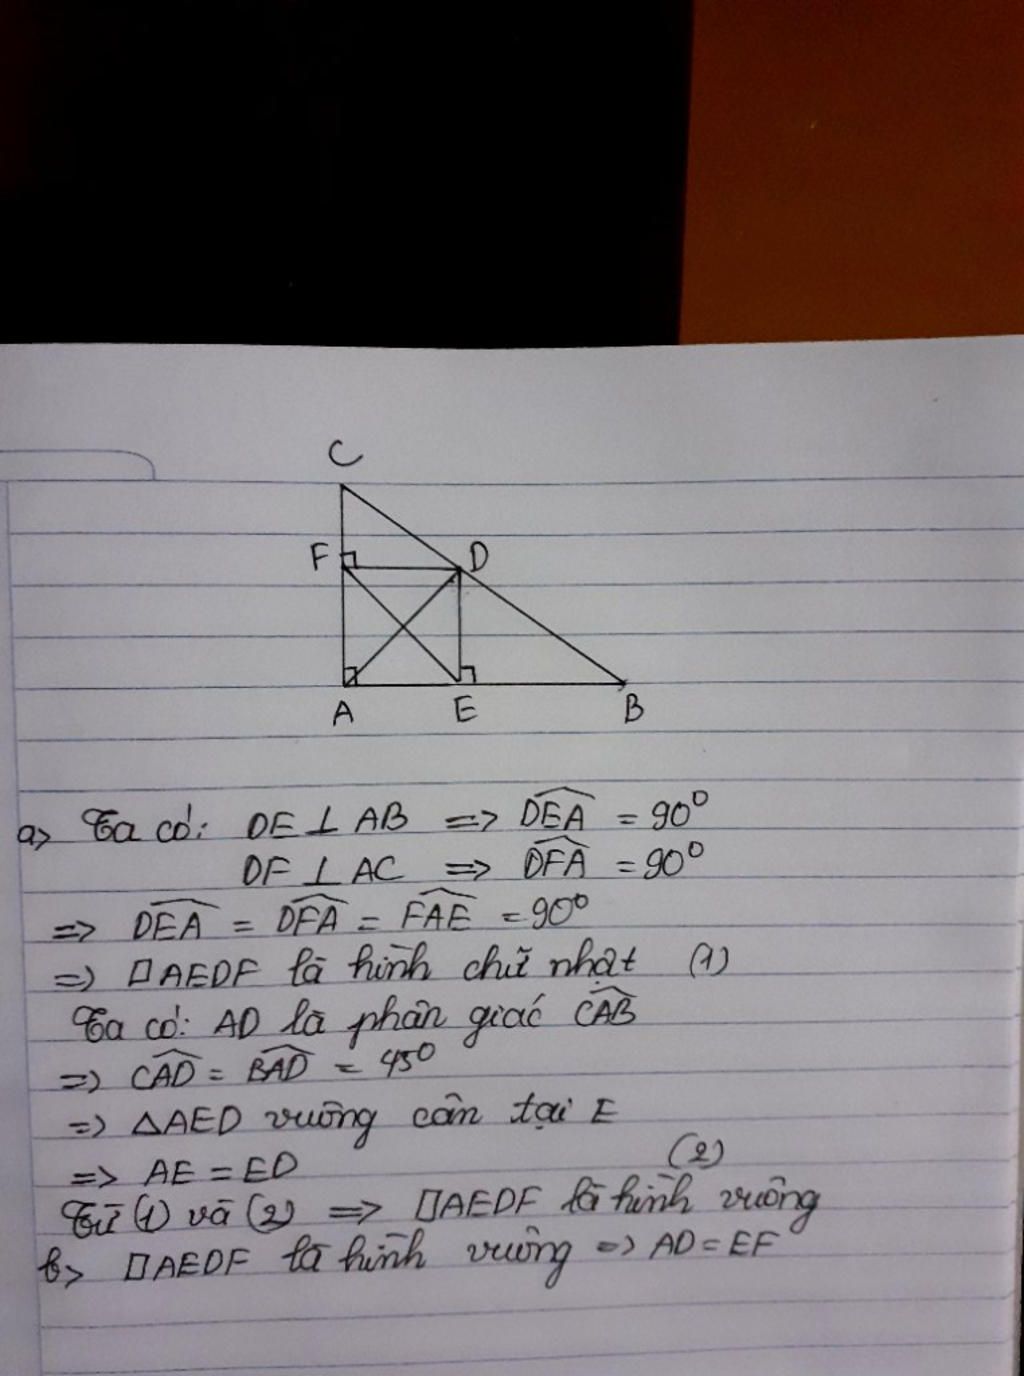 C
F D
A E B
a> Ta có: DE ⊥ AB => \widehat{DEA} = 90⁰
DF ⊥ AC => \widehat{DFA} = 90⁰
=> \widehat{DEA} = \widehat{DFA} = \widehat{FAE} = 90⁰
=> □AEDF là hình chữ nhật (1)
Ta có: AD là phân giác \widehat{CAB}
=> \widehat{CAD} = \widehat{BAD} = 45⁰
=> ΔAED vuông cân tại E
=> AE = ED (2)
Từ (1) và (2) => □AEDF là hình vuông
b> □AEDF là hình vuông => AD = EF